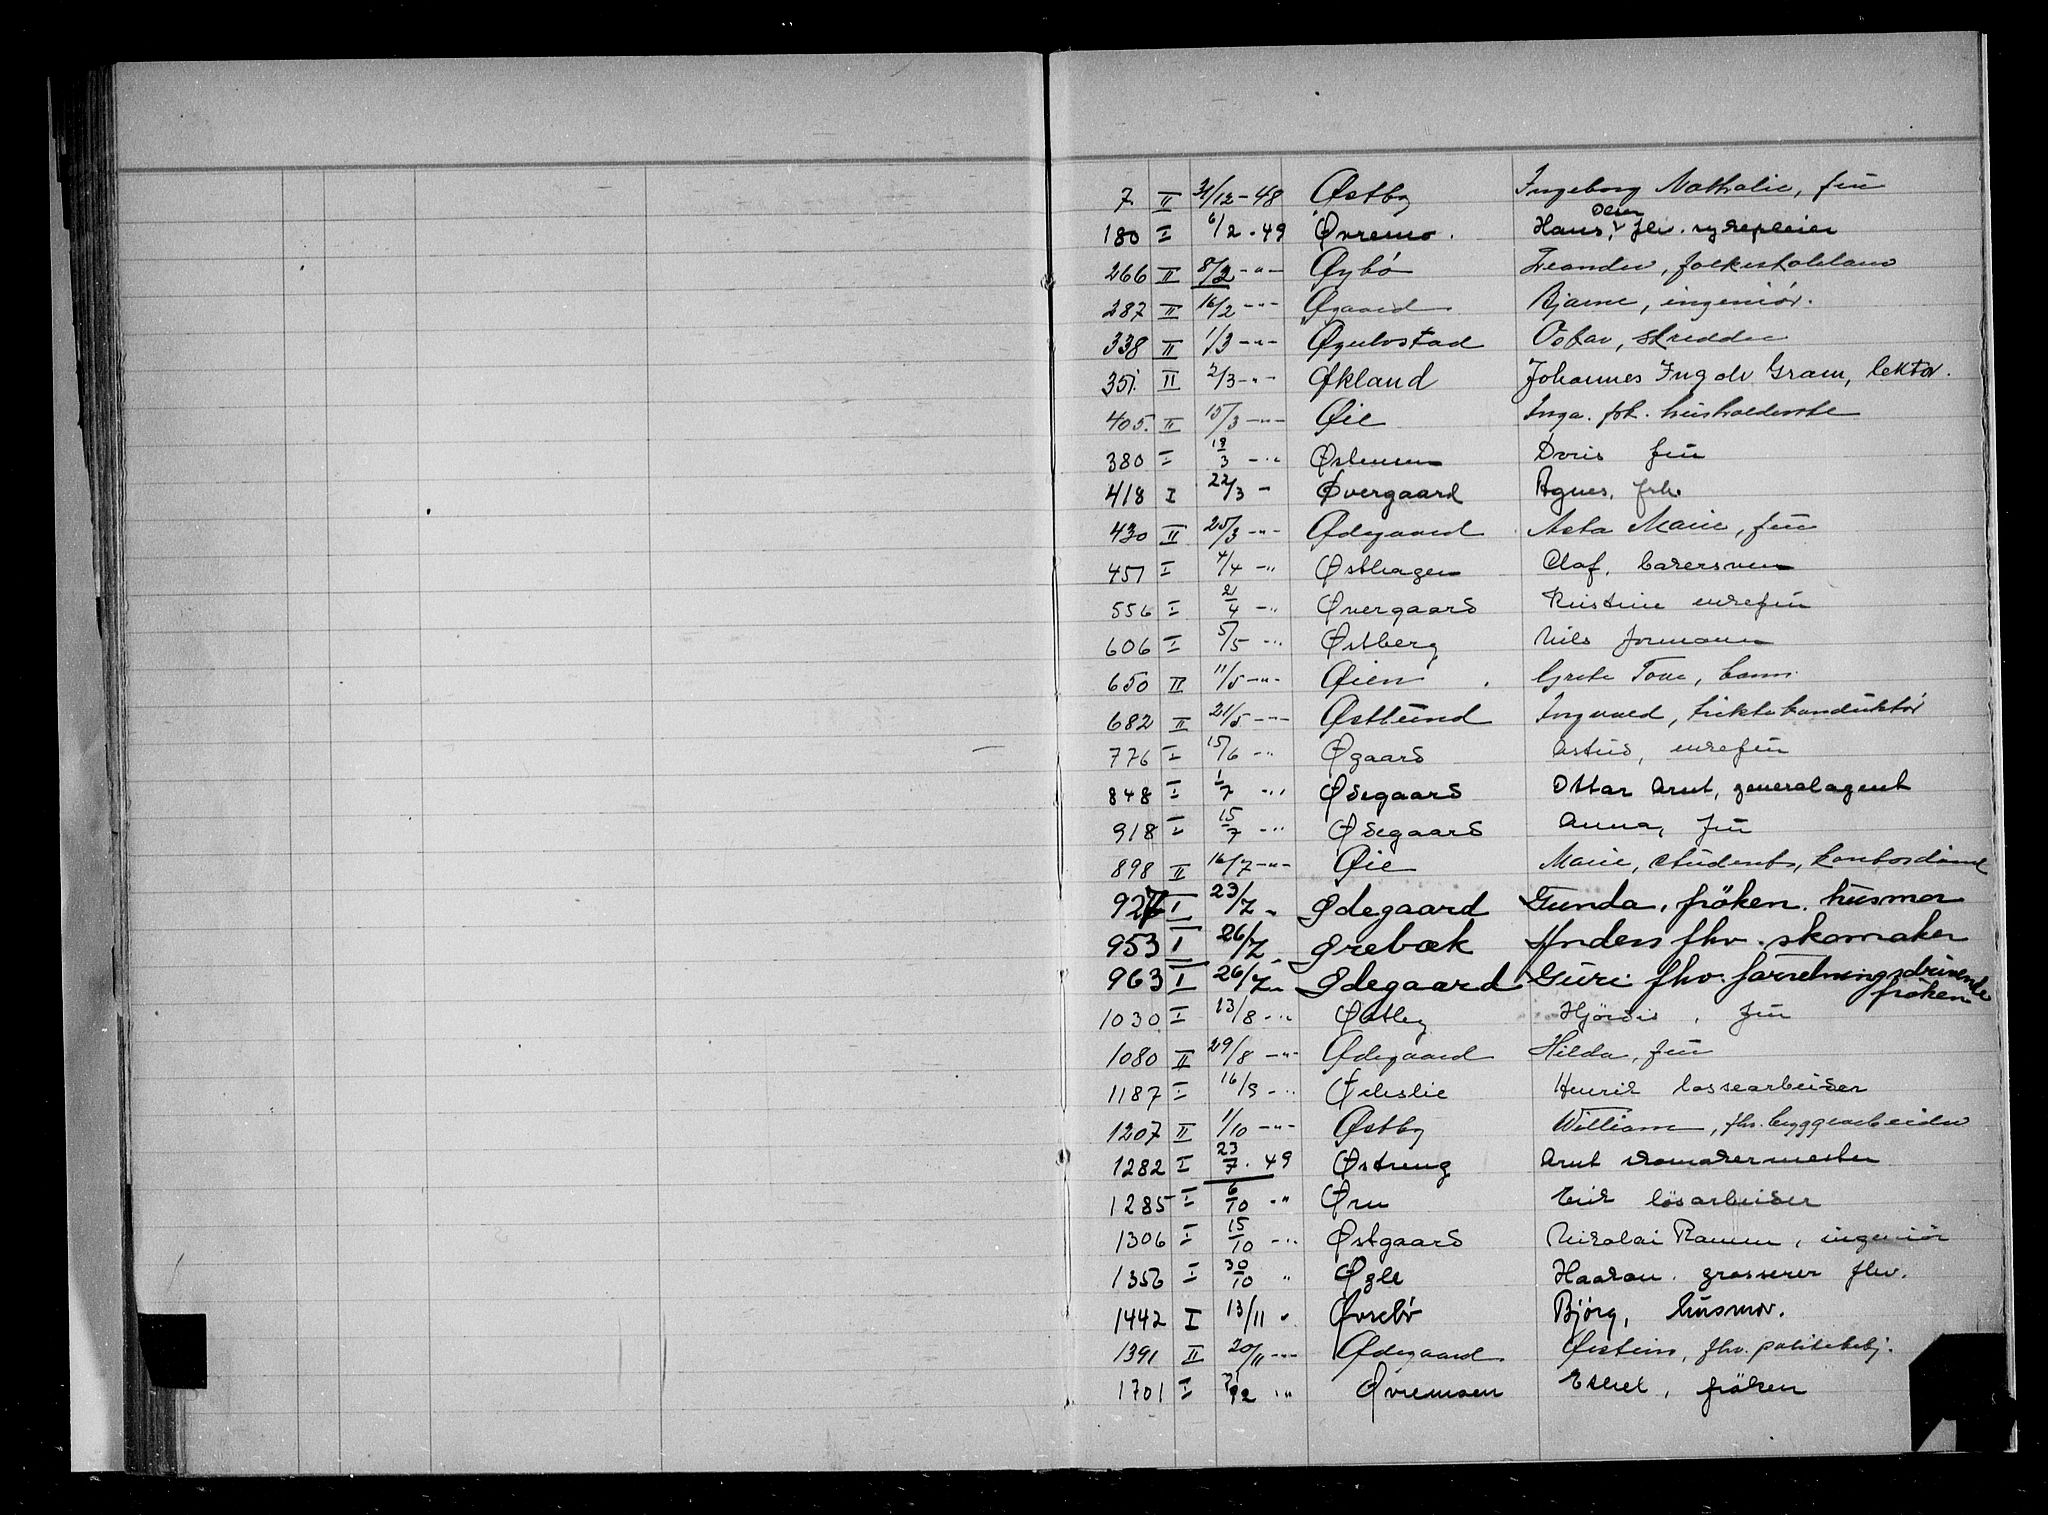 7 II 31/12-48 Østby Ingeborg Nathalie, fru
180 I 6/2-49 Øvremo. Hans Olsen, fhv. sykepleier
266 II 8/2 -"- Øybø Leander, folkeskole
287 II 16/2 -"- Øgaard Bjarne, ingeniør.
338 II 1/3 -"- Øgulvstad Oskar, skredder
351. II 2/3 -"- Økland Johannes Ingolv Gram, lektor.
405. II 15/3 -"- Øie Inga. frk. husholderske
380 I 18/3 -"- Østensen Doris fru
418 I 22/3 - Øvergaard Agnes, frk.
430 II 25/3 -"- Ødegaard Asta Marie, fru
451 I 4/4 -" Østhagen Olaf, bakersvenn
556 I 21/4 -" Øvergaard Kristine enkefru
606 I 5/5 -" Østberg Nils formann
650 II 11/5 -"- Øien Grete Tove, barn
682 II 21/5 -"- Østlund Ingvald, trikkekonduktør
776 I 15/6 -" Øgaard Astrid, enkefru
848 I 1/7 -" Ødegaard Ottar Arnt, generalagent
918 I 15/7 -" Ødegaard Anna, fru
898 II 16/7 -"- Øie Marie, student, kontordame
927 I 23/7 " Ødegaard Gunda, frøken. husmor
953 I 26/7 " Ørebæk Anders fhv. skomaker
963 I 26/7 " Ødegaard Guri fhv. forretningsdrivende frøken
1030 I 13/8 -" Østby Hjørdis, fru
1080 II 29/8 -"- Ødegaard Hilda, fru
1187 I 16/9 -" Henrik lossearbeider
1207 II 1/10 -"- Østby William, fhv. byggearbeider
1282 I 23/7. 49 Østreng Arnt skomakermester
1285 I 6/10 -" Øen Erik løsarbeider
1306 I 15/10 -" Østgaard Nikolai Ramm, ingeniør
1356 I 30/10 " Haakon. grosserer fhv.
1442 I 13/11 " Øvrebø Bjørg, husmor.
1391 II 20/11 -"- Ødegaard Øistein, fhv. politibetj.
1701 I " Øvremsen Ethel, frøken